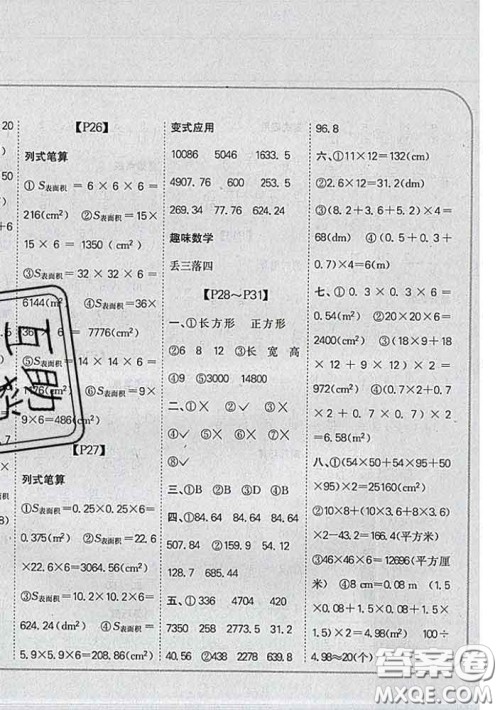 20
50
+6
.7
8)
【P26】
列式笔算
①S表面积＝6×6×6＝
216(cm²) ②S表面积＝15×
15×6＝1350(cm²)
③S表面积＝32×32×6＝
6144(m²) ④S表面积＝36×
×6＝7776(cm²)
⑤S表面积＝14×14×6＝
(cm²) ⑥S表面积＝9×
9×6＝486(cm²)
【P27】
列式笔算
①S表面积＝0.25×0.25×6＝
0.375(m²) ②S表面积＝22.6
×22.6×6＝3064.56(cm²)
③S表面积＝10.2×10.2×6＝
624.24(dm²) ④S表面积＝
5.9×5.9×6＝208.86(cm²)
变式应用
10086 5046 1633.5
4907.76 600 2166
269.34 77.76 624.24
趣味数学
丢三落四
【P28～P31】
一、①长方形 正方形
②6 8 12 ③长 宽 高
④9 ⑤3000 14800
二、①× ②√ ③× ④×
⑤× ⑥√ ⑦×
⑧√
三、①B ②B ③D ④B
四、①84.64 84.64 507.84
507.84 ②159.9 254.1
128.7 685.44
五、①336 4704 420
7350 258 2773.5 31.2
40.56 ②438 2278 639.8
96.8
六、①11×12＝132(cm)
②2.6×12＝31.2(m)
③(8.2＋3.6＋5.2)×4＝
68(dm) ④(0.4＋0.4＋
0.7)×4＝6(m)
七、①0.3×0.3×6＝
0.54(m²) ②20×20×6＝
2400(cm²) ③(18×9＋18
×12＋9×12)×2＝
972(cm²) ④(0.7×2＋2×
0.7＋0.7×0.7)×2＝
6.58(m²)
八、①(54×50＋54×95＋50×
95)×2＝25160(cm²)
②10×8＋(10×3.6＋8×3.6)
×2－43.2＝166.4(平方米)
③46×46×6＝12696(平方厘
米) ④8 cm＝0.08 m (1.5×
0.08＋0.08×1.5＋1.5×
1.5)×2＝4.98(m²) 100÷
4.98≈20(个)
互助
答案圈
MXQE.COM